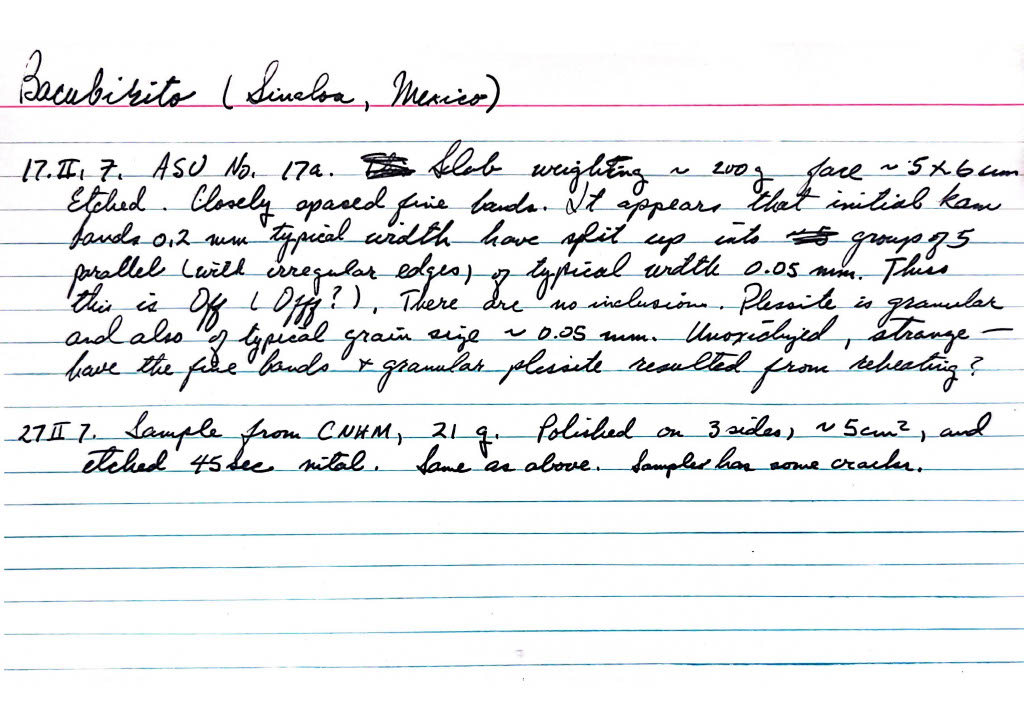 Bacubirito (Sinaloa, Mexico)
17.II.7. ASU No. 17a. Slab weighting ~ 200 g face ~ 5 x 6 cm
Etched. Closely spaced fine bands. It appears that initial kam
bands 0.2 mm typical width have split up into groups of 5
parallel (with irregular edges) of typical width 0.05 mm. Thus
this is Off (Offf?). There are no inclusions. Plessite is granular
and also of typical grain size ~ 0.05 mm. Unoxidized, strange —
have the fine bands & granular plessite resulted from reheating?
27 II 7. Sample from CNHM, 21 g. Polished on 3 sides, ~ 5cm², and
etched 45 sec nital. Same as above. Sample has some cracks.